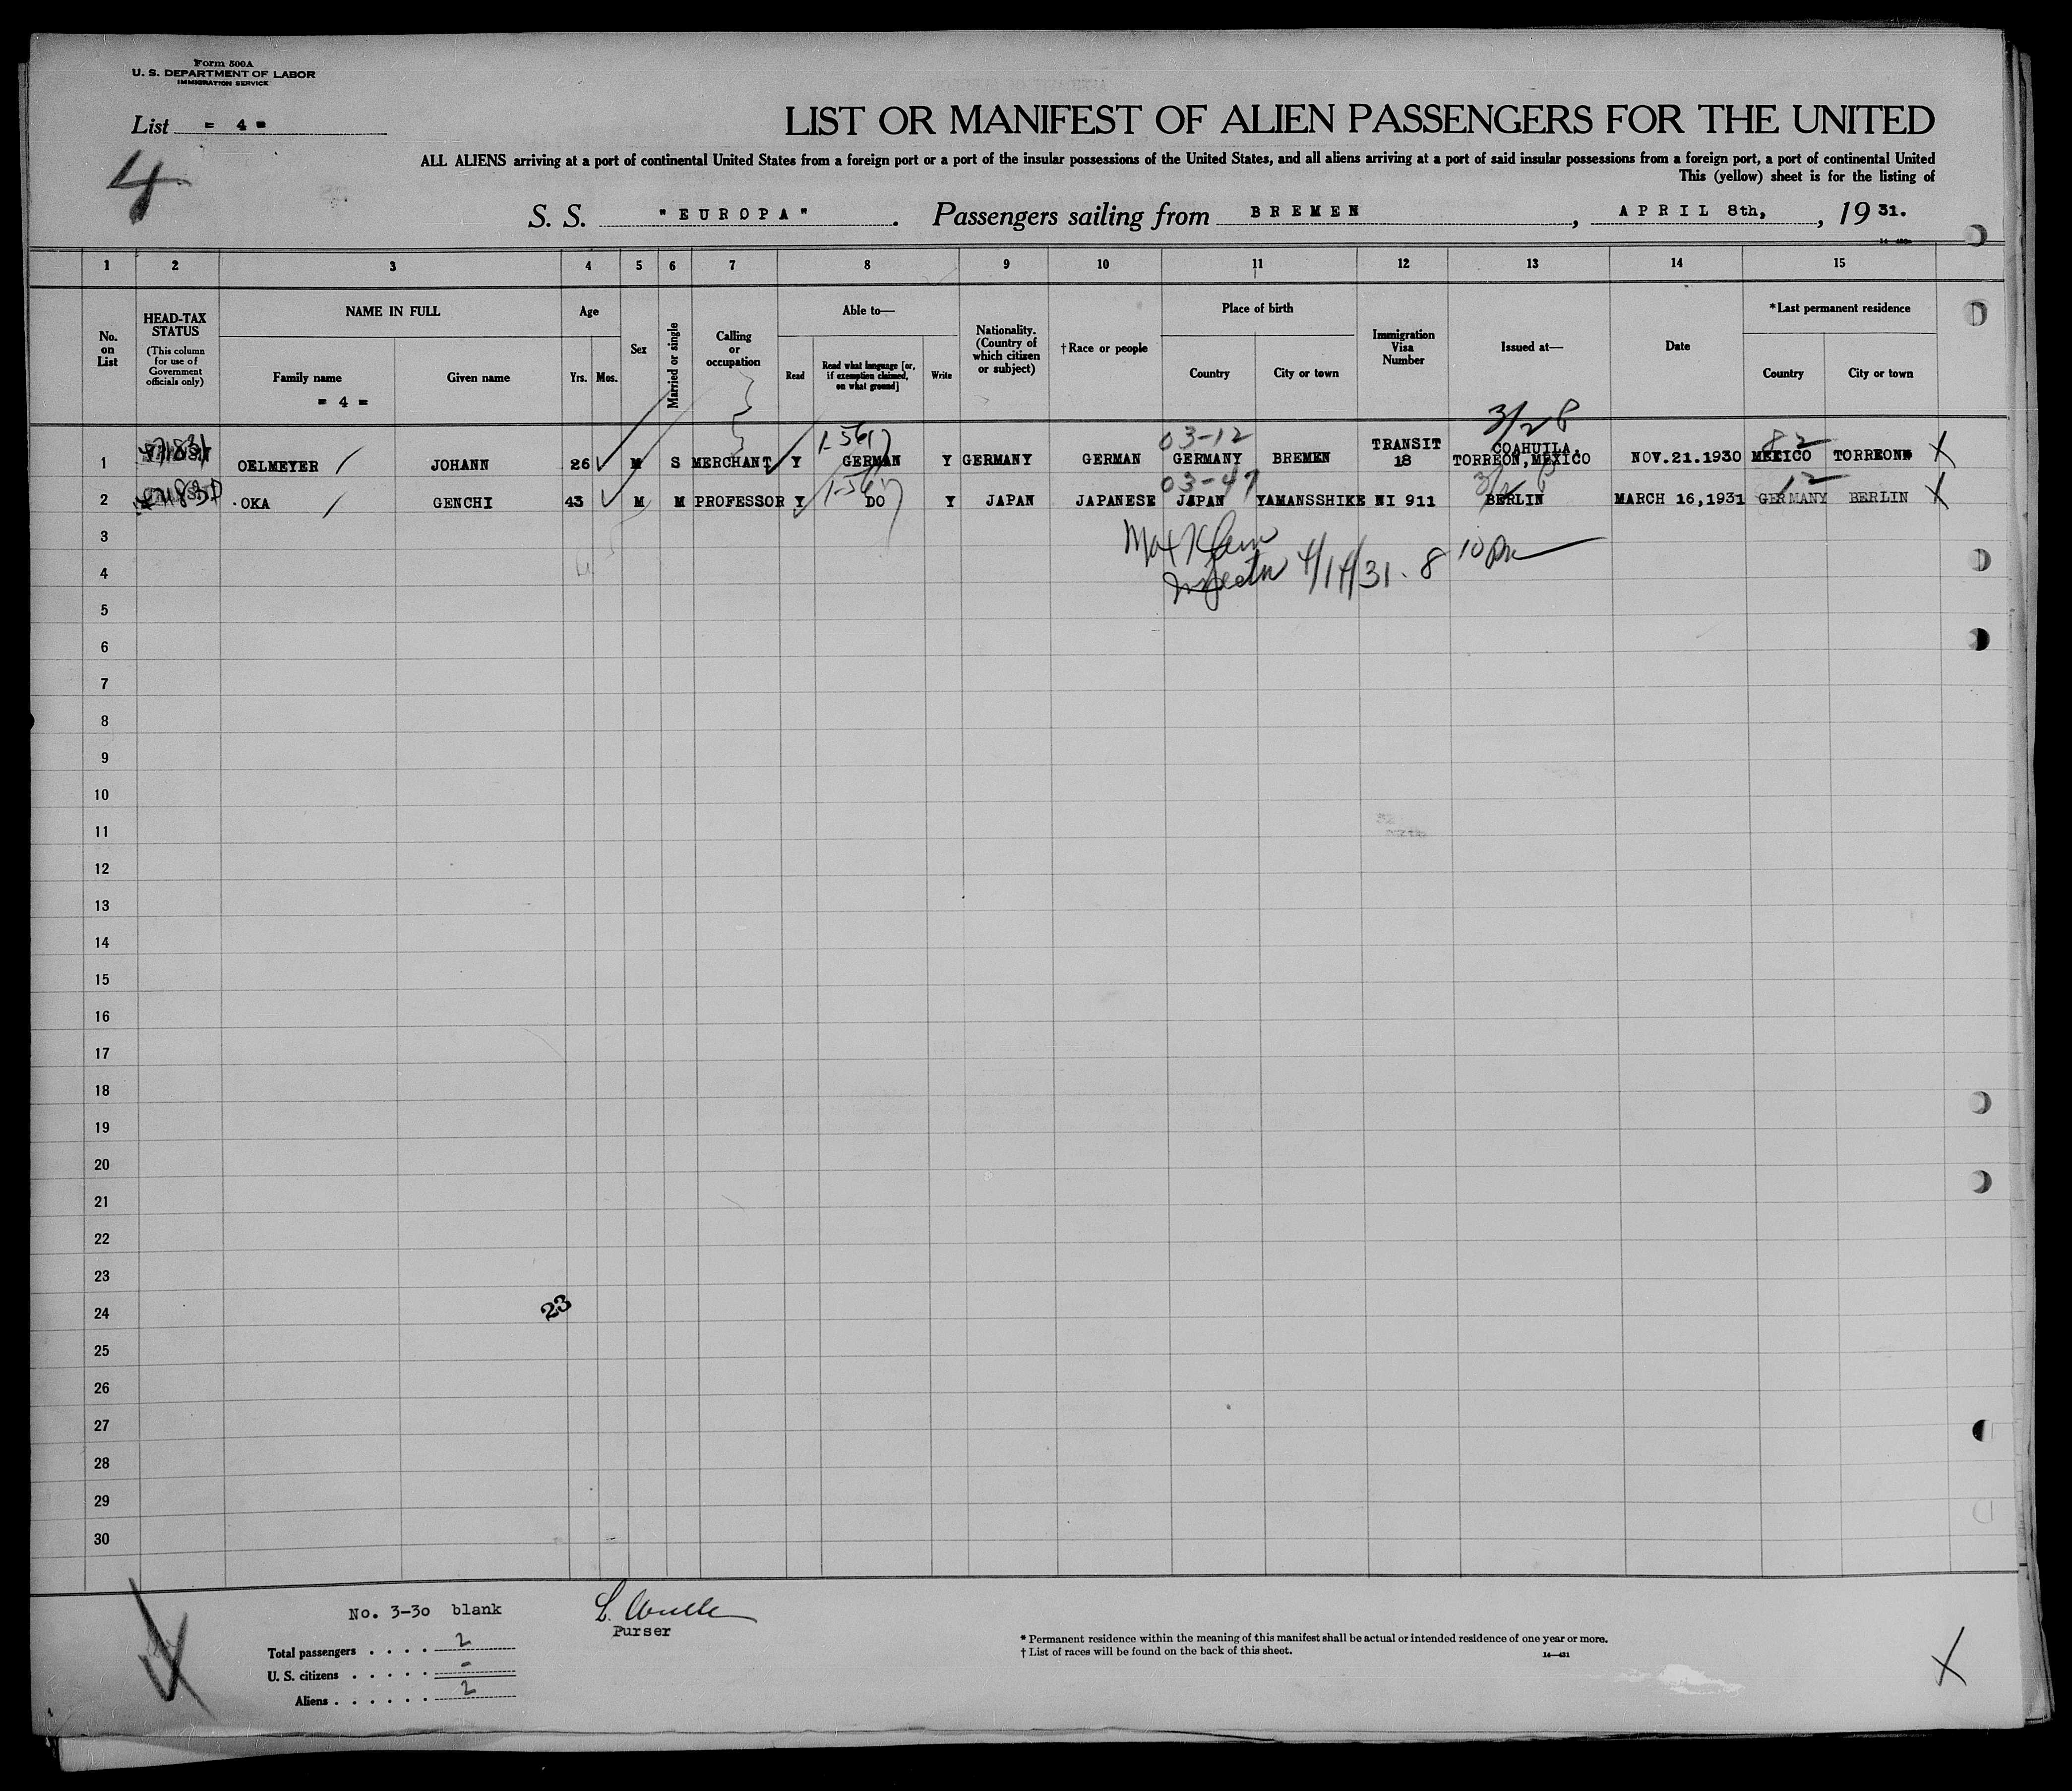 Form 500A
U. S. DEPARTMENT OF LABOR
IMMIGRATION SERVICE
List = 4 =
4
LIST OR MANIFEST OF ALIEN PASSENGERS FOR THE UNITED
ALL ALIENS arriving at a port of continental United States from a foreign port or a port of the insular possessions of the United States, and all aliens arriving at a port of said insular possessions from a foreign port, a port of continental United
This (yellow) sheet is for the listing of
S. S. "EUROPA". Passengers sailing from BREMEN, APRIL 8th, , 19 31.
1 2 3 4 5 6 7 8 9 10 11 12 13 14 15
No. on List
HEAD-TAX STATUS (This column for use of Government officials only)
NAME IN FULL
Family name
= 4 =
Given name
Age
Yrs. Mos.
Sex
Married or single
Calling or occupation
Able to—
Read
Read what language [or, if exemption claimed, on what ground]
Write
Nationality. (Country of which citizen or subject)
†Race or people
Place of birth
Country
City or town
Immigration Visa Number
Issued at—
Date
*Last permanent residence
Country
City or town
3/2 8
1-567 03-12 82
1 OELMEYER JOHANN 26 M S MERCHANT Y GERMAN Y GERMANY GERMAN GERMANY BREMEN TRANSIT 18 COAHUILA, TORREON, MEXICO NOV.21.1930 MEXICO TORREON X
1-567 03-47 12
2 OKA GENCHI 43 M M PROFESSOR Y DO Y JAPAN JAPANESE JAPAN YAMANSSHIKE NI 911 BERLIN MARCH 16,1931 GERMANY BERLIN X
3
Max Klein
4
Inspector 4/14/31. 8 10 pm
5
6
7
8
9
10
11
12
13
14
15
16
17
18
19
20
21
22
23
24
23
25
26
27
28
29
30
No. 3-30 blank
Purser
Total passengers . . . . 2
U. S. citizens . . . . . -
Aliens . . . . . . 2
* Permanent residence within the meaning of this manifest shall be actual or intended residence of one year or more.
† List of races will be found on the back of this sheet.
14—431
X